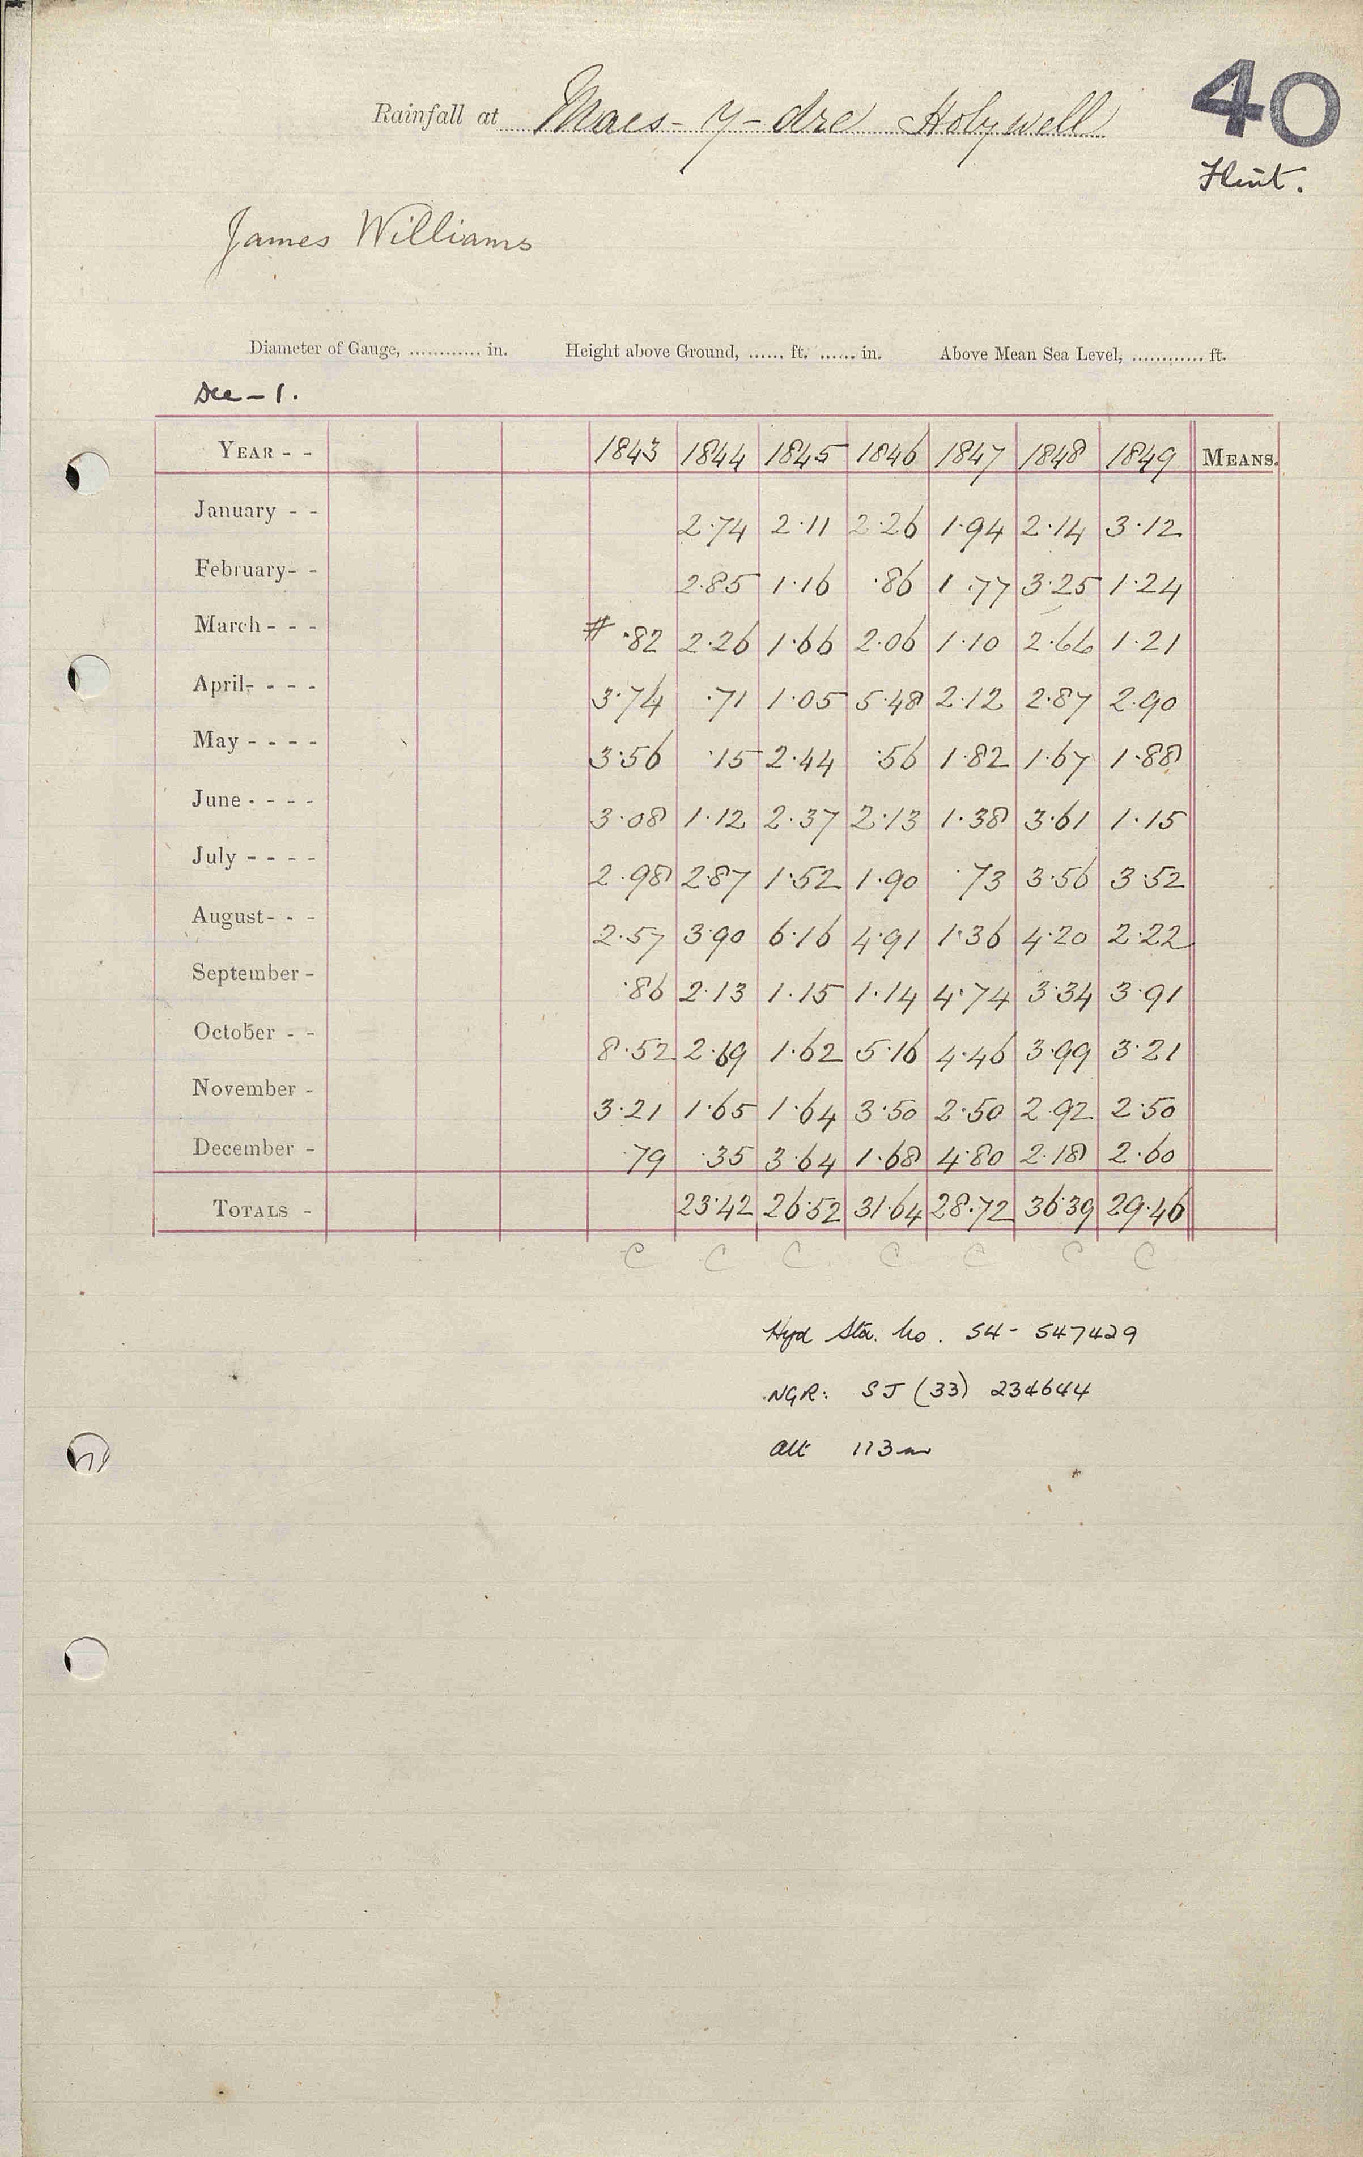 40
Rainfall at Maes-y-dre Holywell
Flint.
James Williams
Diameter of Gauge, ............ in. Height above Ground, ...... ft. ...... in. Above Mean Sea Level, ............ ft.
Dec - 1.
YEAR - - 1843 1844 1845 1846 1847 1848 1849 MEANS.
January - - 2·74 2·11 2·26 1·94 2·14 3·12
February- - 2·85 1·16 ·86 1·77 3·25 1·24
March - - - # ·82 2·26 1·66 2·06 1·10 2·66 1·21
April- - - - 3·74 ·71 1·05 5·48 2·12 2·87 2·90
May - - - - 3·56 ·15 2·44 ·56 1·82 1·67 1·88
June - - - - 3·08 1·12 2·37 2·13 1·38 3·61 1·15
July - - - - 2·98 2·87 1·52 1·90 ·73 3·56 3·52
August- - - 2·57 3·90 6·16 4·91 1·36 4·20 2·22
September - ·86 2·13 1·15 1·14 4·74 3·34 3·91
October - - 8·52 2·69 1·62 5·16 4·46 3·99 3·21
November - 3·21 1·65 1·64 3·50 2·50 2·92 2·50
December - ·79 ·35 3·64 1·68 4·80 2·18 2·60
TOTALS - 23·42 26·52 31·64 28·72 36·39 29·46
C C C C C C C
Hyd Sta. No. 54- 547429
NGR: SJ (33) 234644
Alt 113m